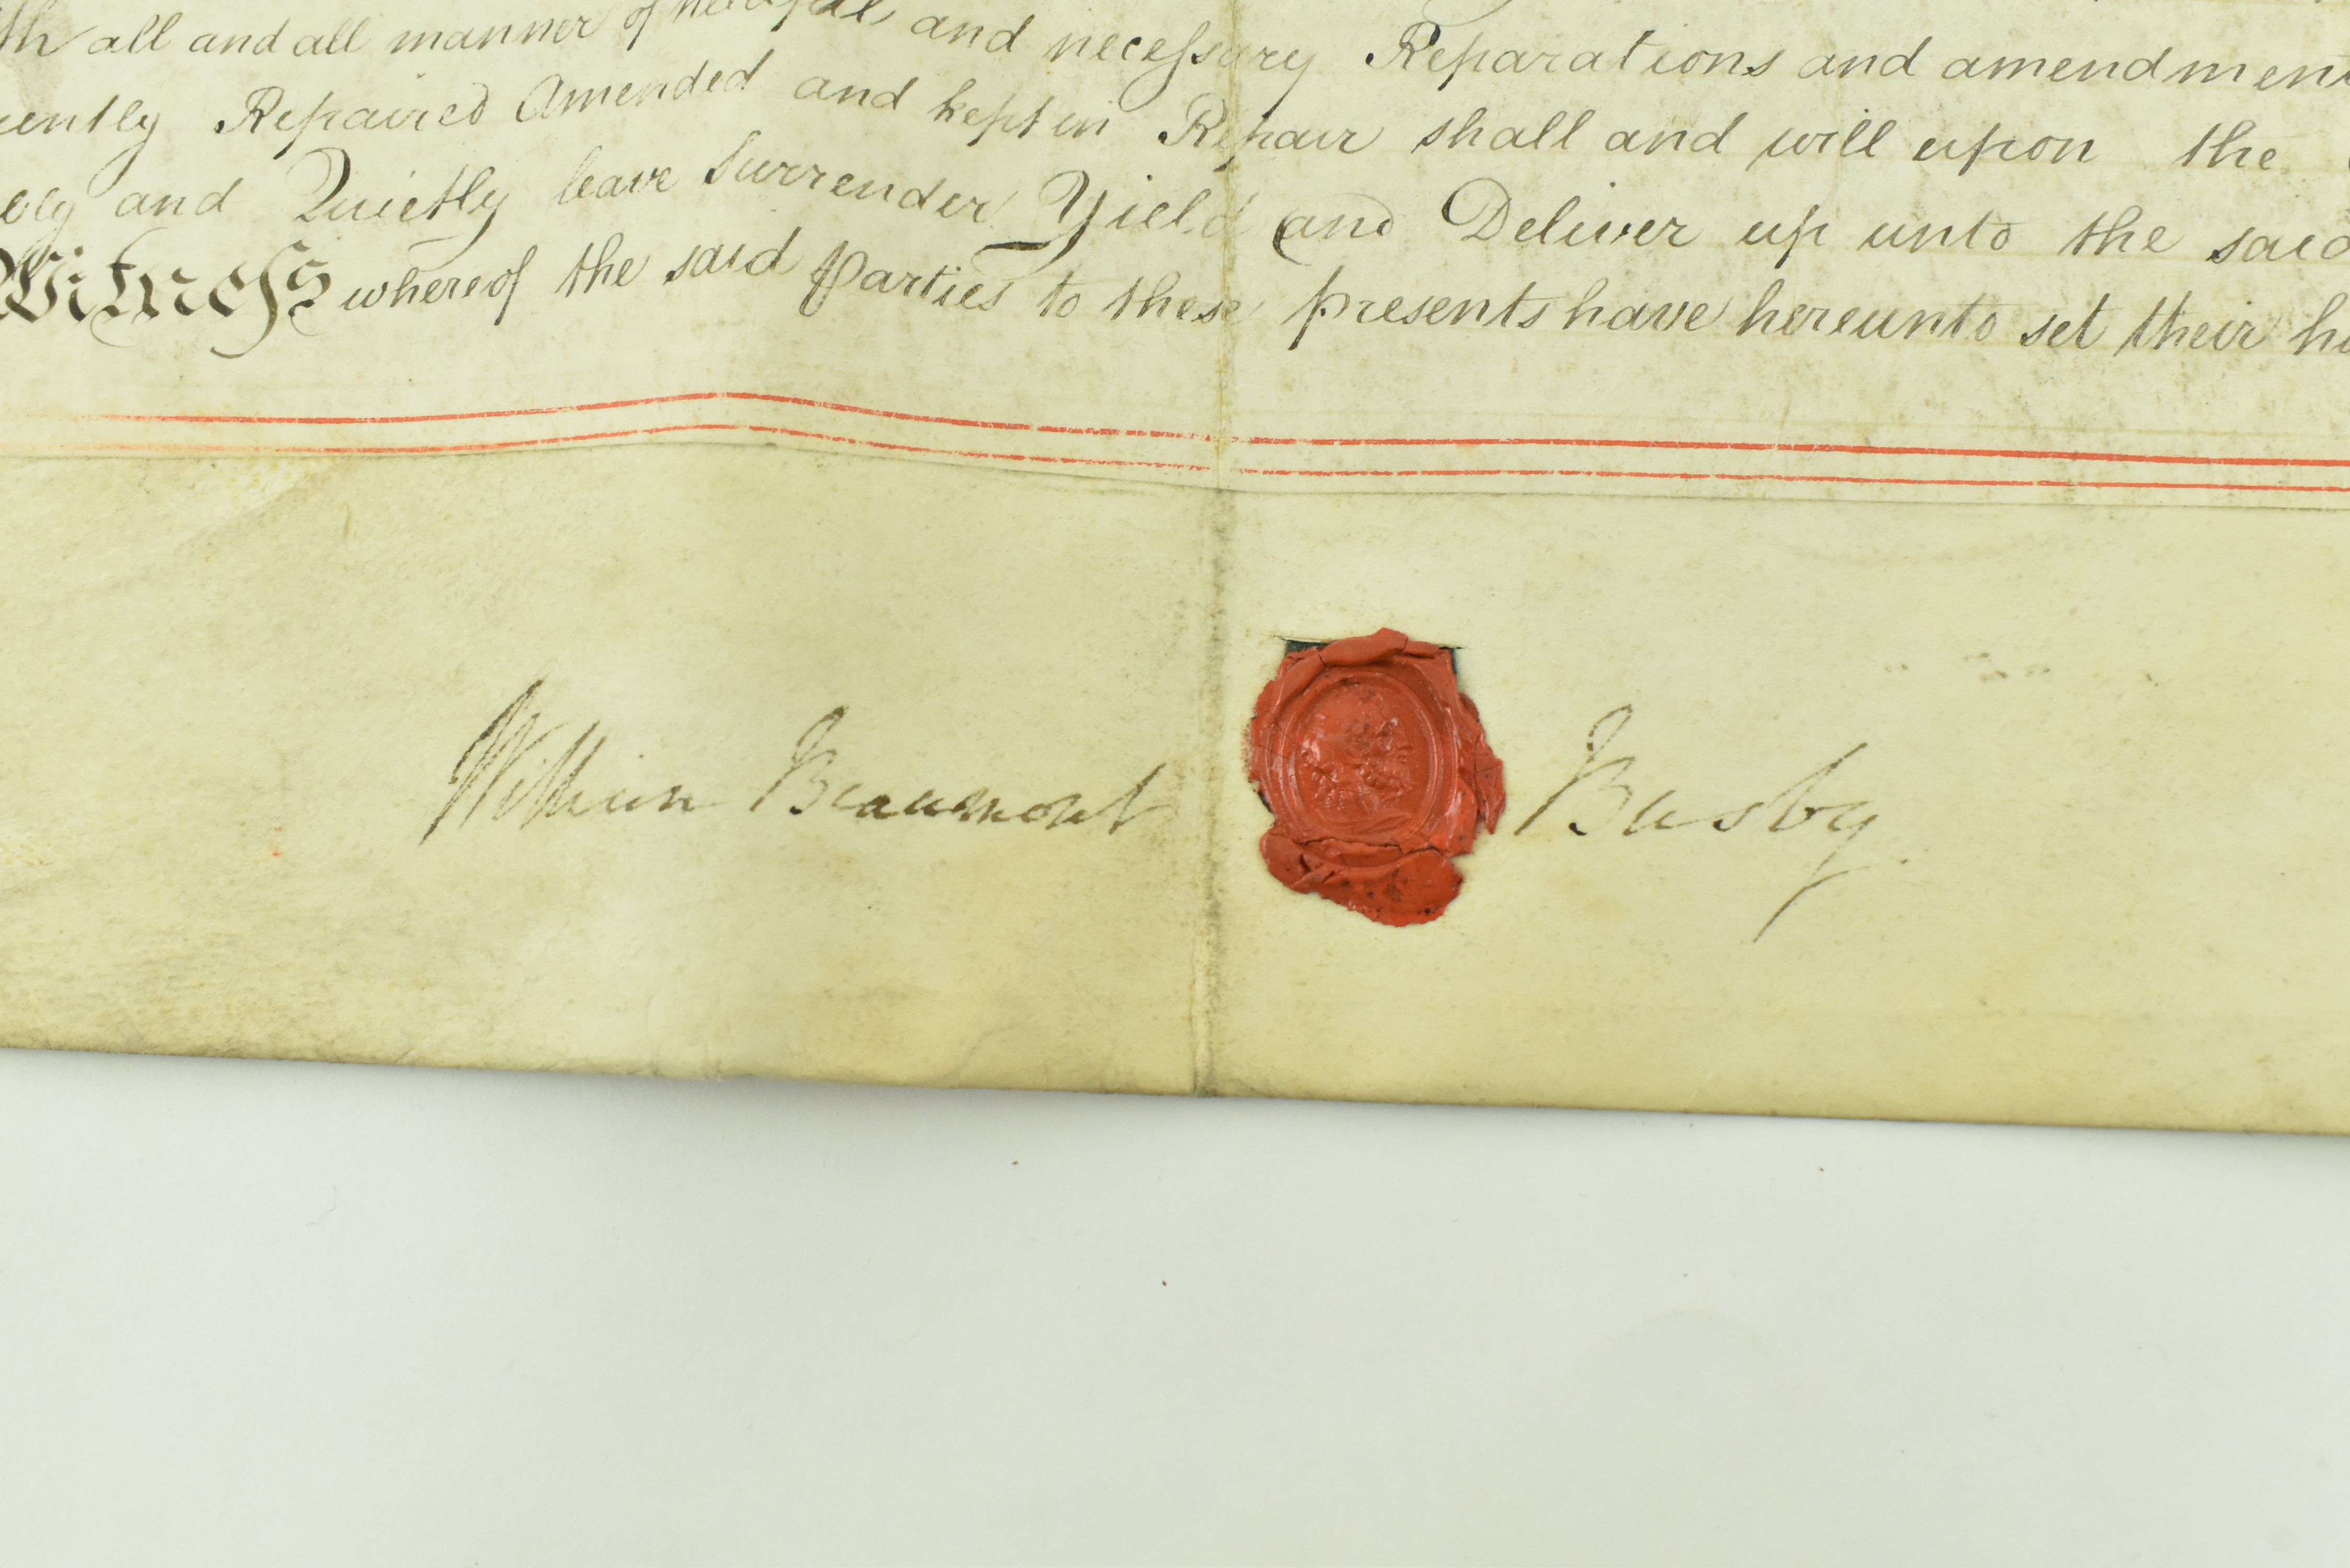 th all and all manner of needful and necessary Reparations and amendment
ently Repaired Amended and kept in Repair shall and will upon the
ly and Quietly leave Surrender Yield and Deliver up unto the said
Witness whereof the said Parties to these presents have hereunto set their h
William Beaumont Busby